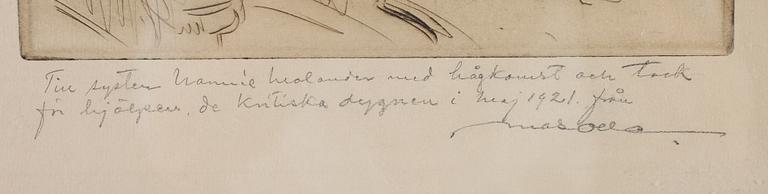 Till syster Nannie Melander med hågkomst och tack
för hjälpen, de kritiska dygnen i maj 1921. från
Mas Olle